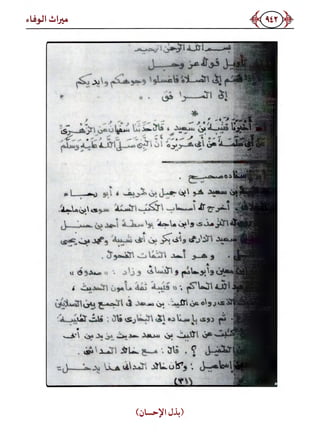 ميراث الوفاء
٩٤٢
بسم الله الرحمن الرحيم
تأويل قوله عز وجل
قمتم إلى الصلاة فاغسلوا وجوهكم وأيديكم
إلى المرافق .
*
أخبرنا قتيبة بن سعيد ، قال حدثنا سفيان عن الزهرى
أبى سلمة عن أبى هريرة أن النبى صلى الله عليه وسلم
إسناده صحيح .
بن سعيد هو ابن جميل بن طريف ، أبو رجاء
أخرج له أصحاب الكتب الستة سوى ابن ماجة
له الترمذى وابن ماجة بواسطة أحمد بن حنبل
سعيد الدارمى وأبى بكر بن أبى شيبة ومحمد بن يحيى
وهو أحد الثقات الفحول .
ابن معين وأبو حاتم والنسائى وزاد : « صدوق »
الله الحاكم : « قتيبة ثقة مأمون الحديث ،
الذى رواه عن الليث بن سعد فى الجمع بين الصلاتين
ثم روى بإسناده إلى البخارى قال : قلت لقتيبة :
كتبت عن الليث بن سعد حديث يزيد بن أبى
الطفيل ؟ . قال : مع خالد المدائنى .
إسماعيل : وكان خالد المدائنى هذا يدخل =
(٣١)
(بذل الإحسان)